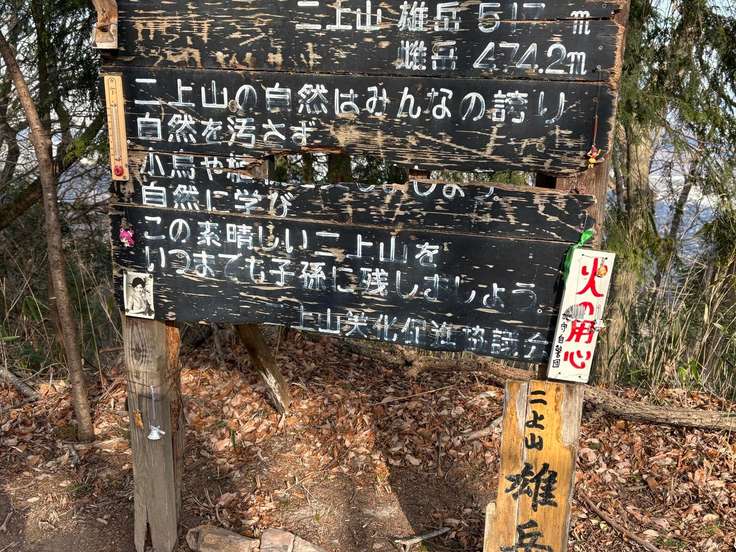 二上山 雄岳 517m
雌岳 474.2m
二上山の自然はみんなの誇り
自然を汚さず
小鳥や
自然に学び
この素晴しい二上山を
いつまでも子孫に残しましょう。
上山美化促進協議会
火の用心
二上山
雄岳